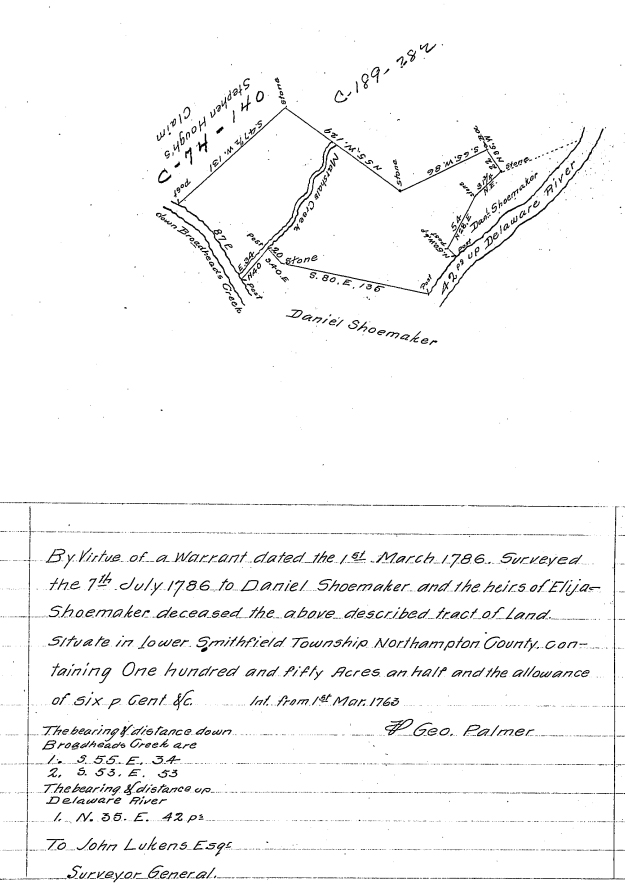 C-189-282
C-47-140
Stephen Hough's
Claim
Stone
S.47½.W. 131
Post
N 55. W. 129
Marshals Creek
Stone
S. 65. W. 86
Stone
Stone
Danl Shoemaker
Post
42 ps up Delaware River
Post
87 P.
down Broadheads Creek
Post
20
Stone
S 40. E
Post
S. 80. E. 136
Daniel Shoemaker
By Virtue of a Warrant dated the 1st March 1786. Surveyed
the 7th July 1786 to Daniel Shoemaker and the heirs of Elija=
Shoemaker deceased the above described tract of Land.
Situate in lower Smithfield Township Northampton County, con-
taining One hundred and fifty Acres an half and the allowance
of six p Cent &c. Int. from 1st Mar. 1763
Geo. Palmer
The bearing & distance down
Broadheads Creek are
1. S. 55. E. 34
2. S. 53. E. 53
The bearing & distance up
Delaware River
1. N. 35. E. 42 ps
To John Lukens Esqr
Surveyor General.